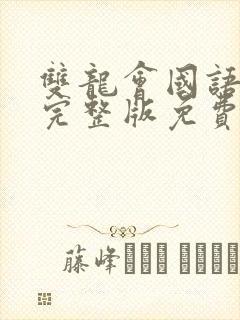 雙龍會國語
完整版免費
藤峰